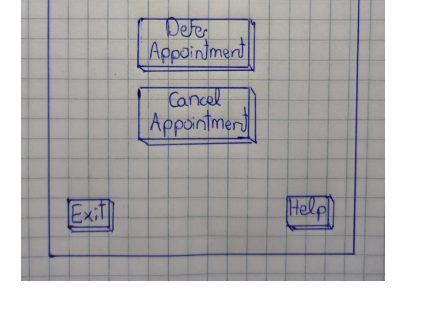 Defer
Appointment
Cancel
Appointment
Exit
Help